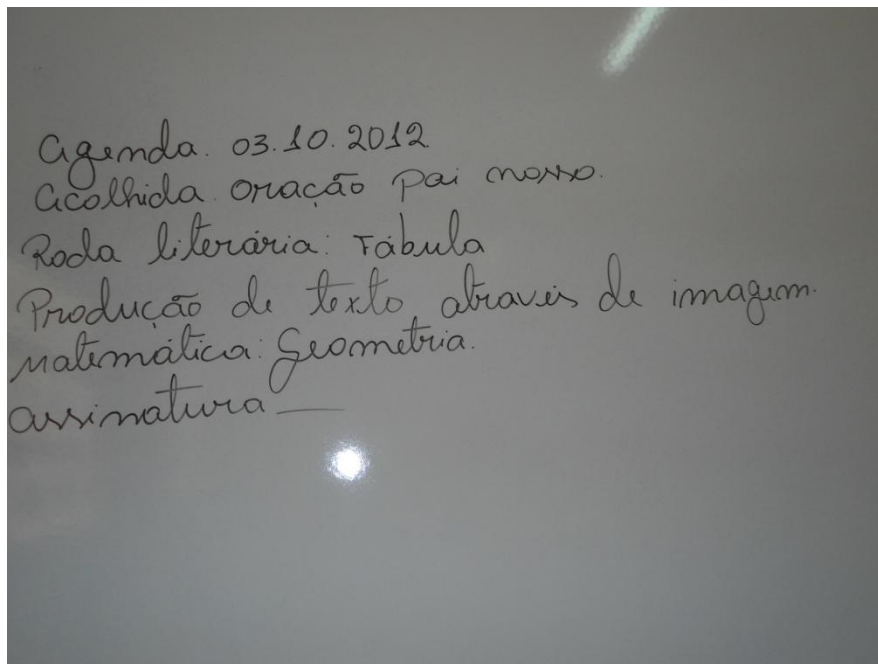 Agenda. 03.10.2012
Acolhida. Oração Pai nosso.
Roda literária: Fábula
Produção de texto através de imagem.
Matemática: Geometria.
Assinatura